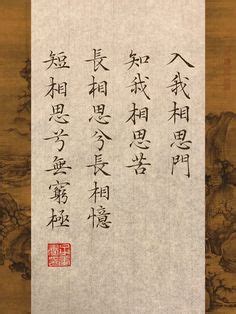 入我相思門
知我相思苦
長相思兮長相憶
短相思兮無窮極